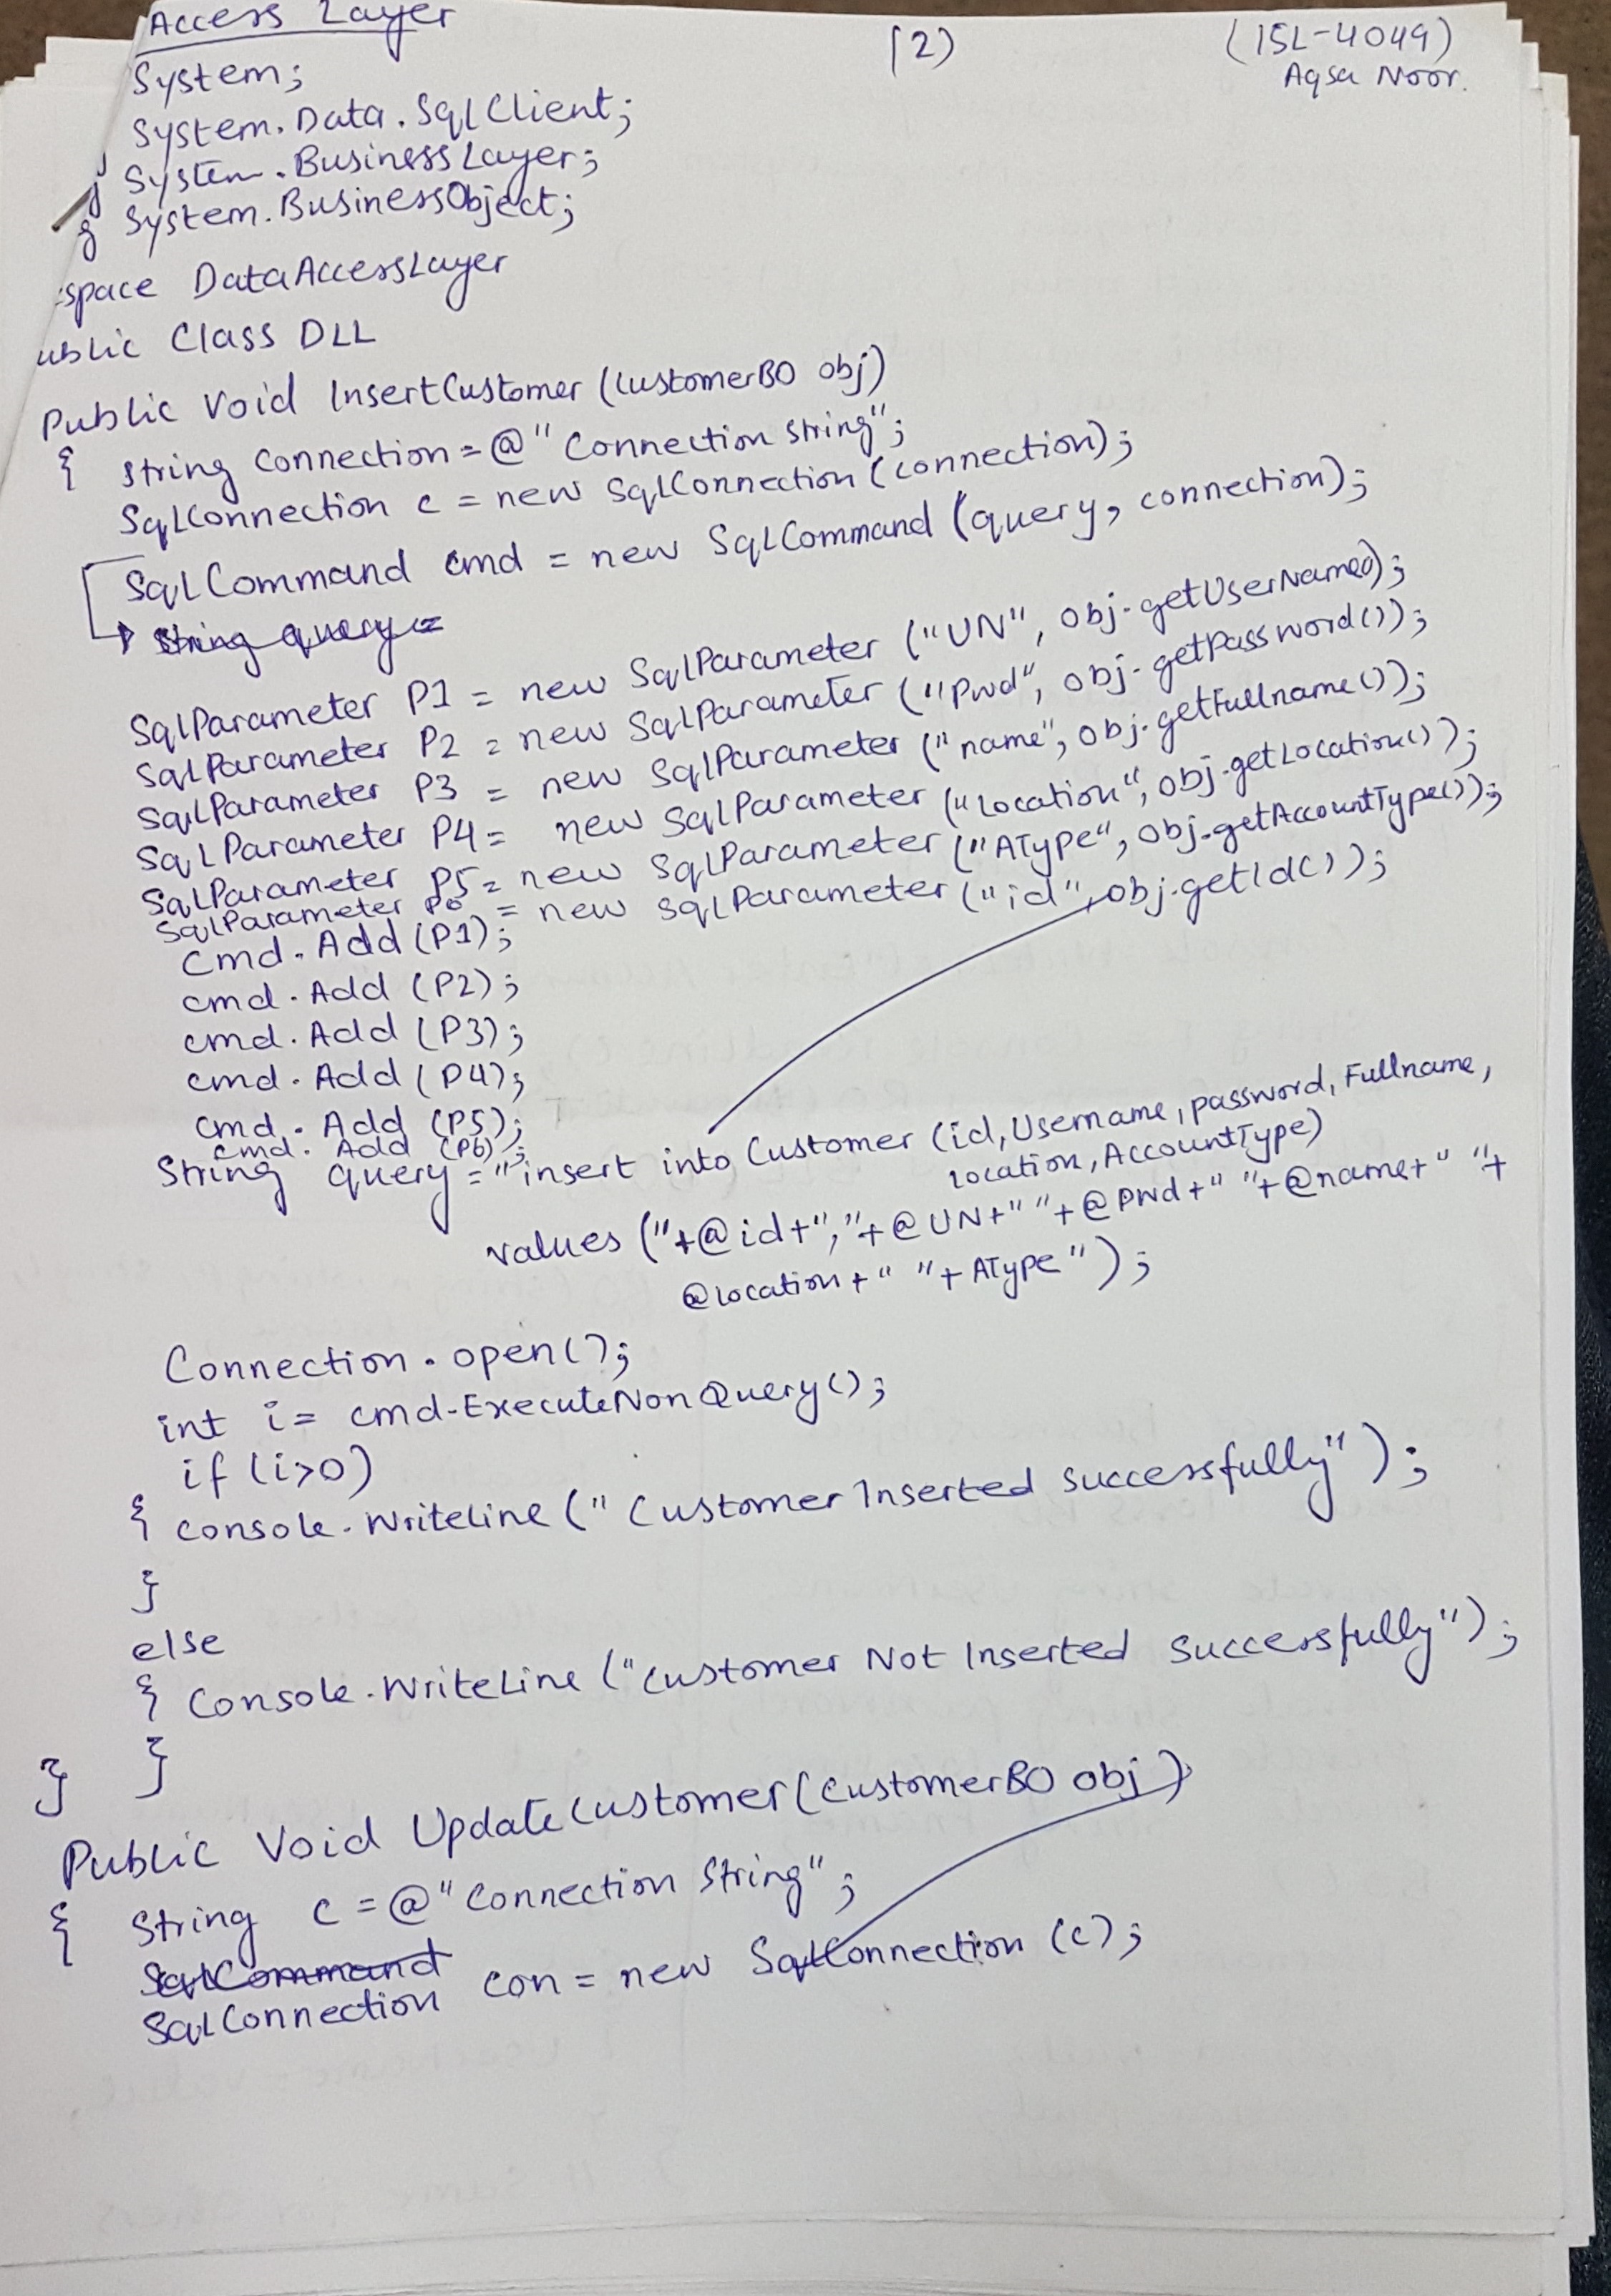 Access Layer
(2)
(15L-4049)
Aqsa Noor.
System;
System.Data.SqlClient;
g System.BusinessLayer;
g System.BusinessObject;
space DataAccessLayer
ublic Class DLL
Public Void InsertCustomer (CustomerBO obj)
{ String Connection = @"Connection String";
SqlConnection c = new SqlConnection (connection);
SqlCommand cmd = new SqlCommand (query, connection);
String query =
SqlParameter P1 = new SqlParameter ("UN", obj.getUserName());
SqlParameter P2 = new SqlParameter ("Pwd", obj.getPassword());
SqlParameter P3 = new SqlParameter ("name", obj.getFullname());
SqlParameter P4 = new SqlParameter ("location", obj.getLocation());
SqlParameter P5 = new SqlParameter ("AType", obj.getAccountType());
SqlParameter P6 = new SqlParameter ("id", obj.getId());
Cmd.Add (P1);
cmd.Add (P2);
cmd.Add (P3);
cmd.Add (P4);
cmd.Add (P5);
cmd.Add (P6);
String query = "insert into Customer (id, Username, password, Fullname,
location, AccountType)
values ("+@id+","+@UN+" "+@Pwd+" "+@name+" "+
@location+" "+AType");
Connection.open();
int i = cmd.ExecuteNonQuery();
if (i>0)
{ Console.WriteLine ("Customer Inserted Successfully");
}
else
{ Console.WriteLine ("Customer Not Inserted Successfully");
} }
Public Void UpdateCustomer(CustomerBO obj)
{ String c = @"Connection String";
SqlCommand
SqlConnection con = new SqlConnection (c);